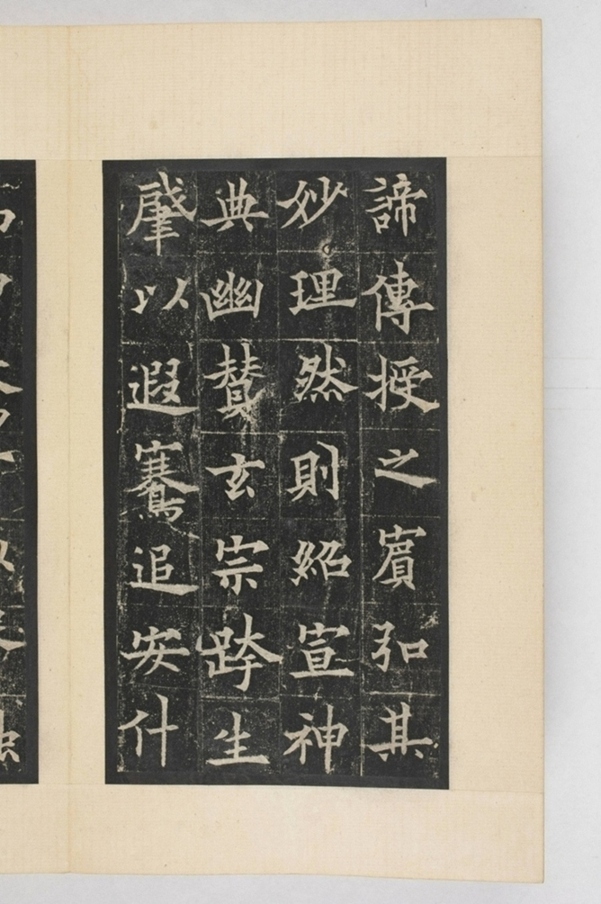 諦傳授之賓弘其
妙理然則紹宣神
典幽贊玄宗跨生
肇以遐騫追安什